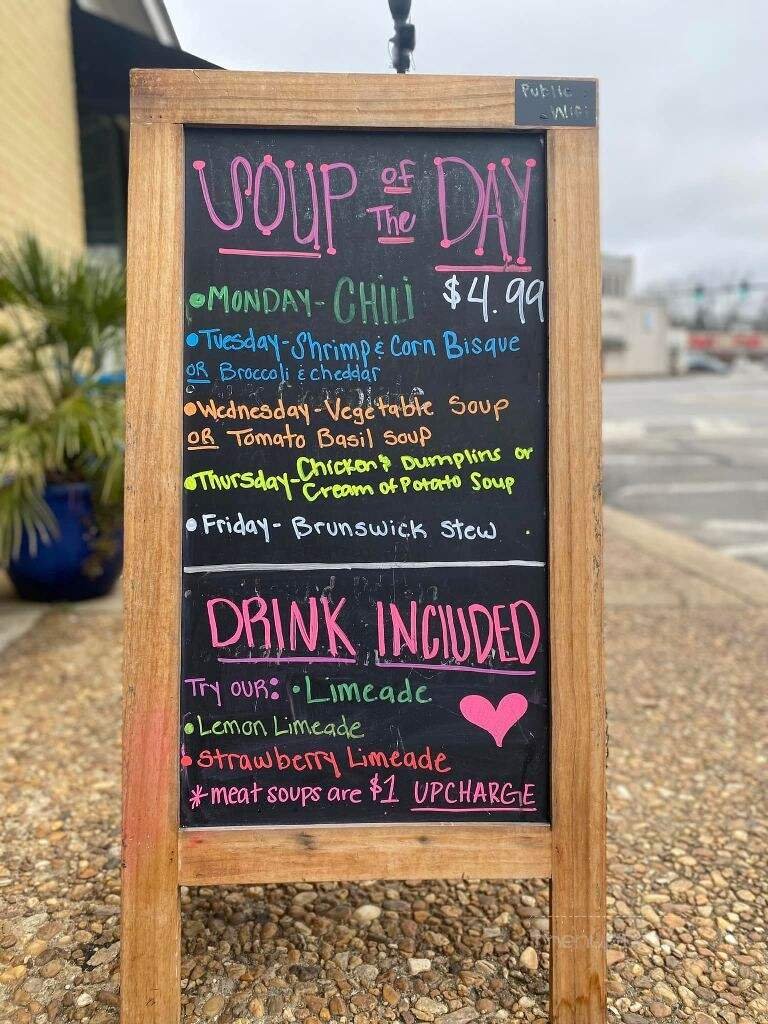 Public
Wifi
SOUP of The DAY
•MONDAY- CHILI $4.99
•Tuesday-Shrimp & Corn Bisque
OR Broccoli & cheddar
•Wednesday-Vegetable Soup
OR Tomato Basil soup
•Thursday-Chicken & Dumplins or
Cream of Potato Soup
•Friday- Brunswick Stew
DRINK INCLUDED
Try our: •Limeade
•Lemon Limeade
•Strawberry Limeade
*meat soups are $1 UPCHARGE